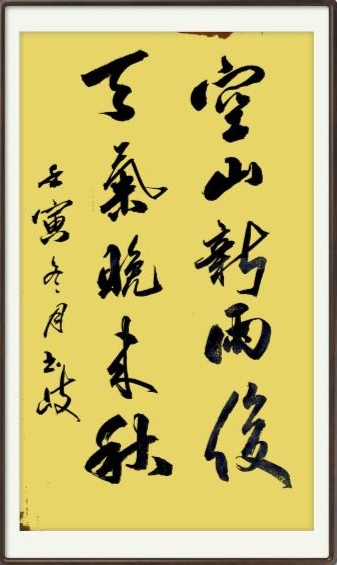 空山新雨後
天氣晚来秋
壬寅冬月岐